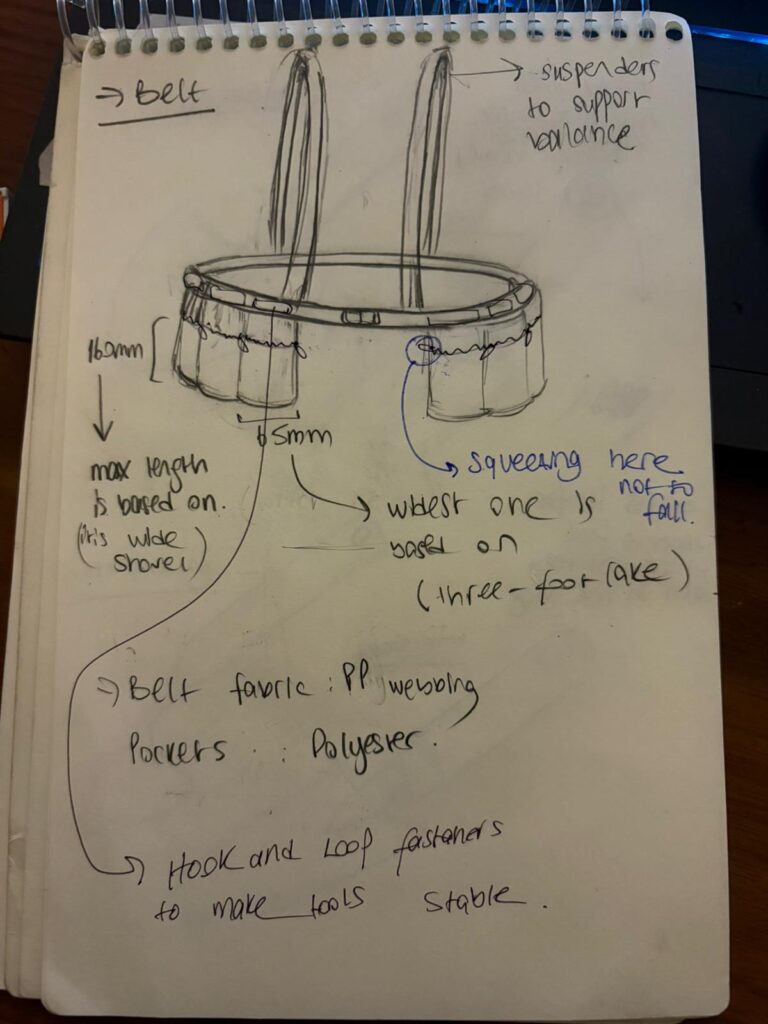 → Belt
→ suspenders
to support
balance
160mm
65mm
max length
is based on.
(its wide
shovel)
squeezing here
not to
fall.
widest one is
based on
(three-foot rake)
→ Belt fabric : PP webbing
Pockets . : Polyester.
Hook and Loop fasteners
to make tools stable.